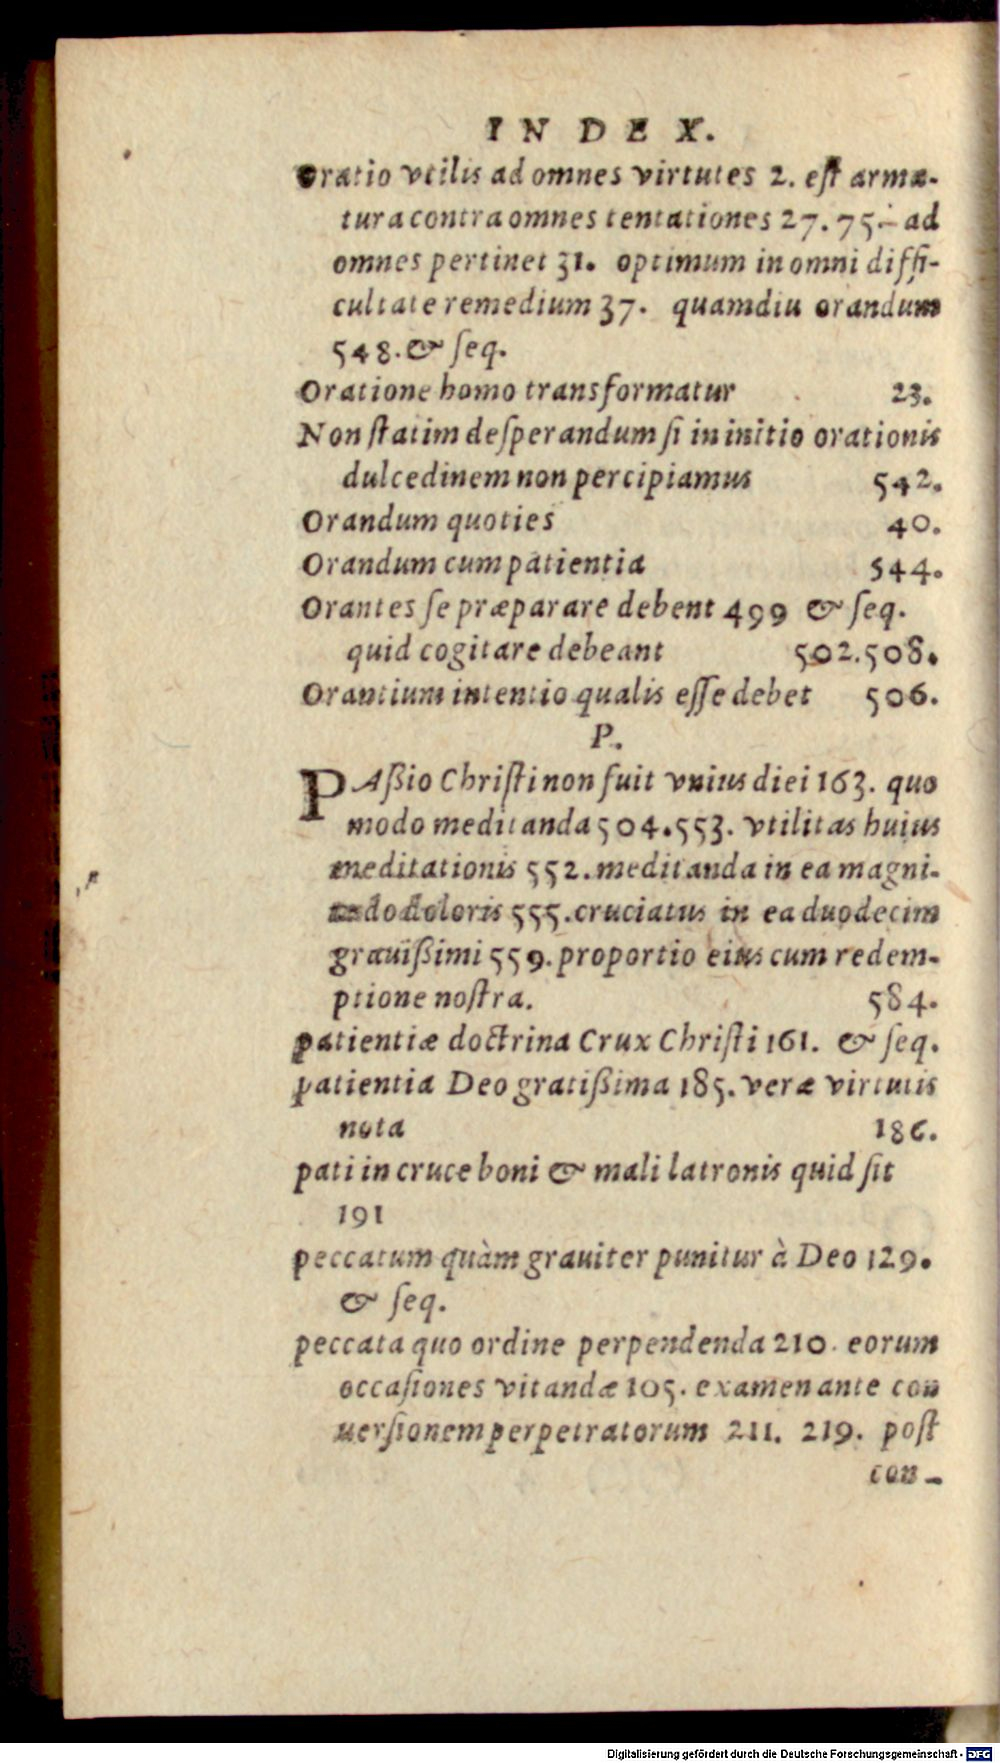 INDEX.
Oratio vtilis ad omnes virtutes 2. est arma-
tura contra omnes tentationes 27. 75. ad
omnes pertinet 31. optimum in omni diffi-
cultate remedium 37. quamdiu orandum
548. & seq.
Oratione homo transformatur 23.
Non statim desperandum si in initio orationis
dulcedinem non percipiamus 542.
Orandum quoties 40.
Orandum cum patientia 544.
Orantes se præparare debent 499 & seq.
quid cogitare debeant 502. 508.
Orantium intentio qualis esse debet 506.
P.
PAßio Christi non fuit vnius diei 163. quo
modo meditanda 504. 553. vtilitas huius
meditationis 552. meditanda in ea magni-
tudo doloris 555. cruciatus in ea duodecim
grauißimi 559. proportio eius cum redem-
ptione nostra. 584.
patientiæ doctrina Crux Christi 161. & seq.
patientia Deo gratißima 185. veræ virtutis
nota 186.
pati in cruce boni & mali latronis quid sit
191
peccatum quàm grauiter punitur à Deo 129.
& seq.
peccata quo ordine perpendenda 210. eorum
occasiones vitandæ 105. examen ante con
uersionem perpetratorum 211. 219. post
con-
Digitalisierung gefördert durch die Deutsche Forschungsgemeinschaft - DFG